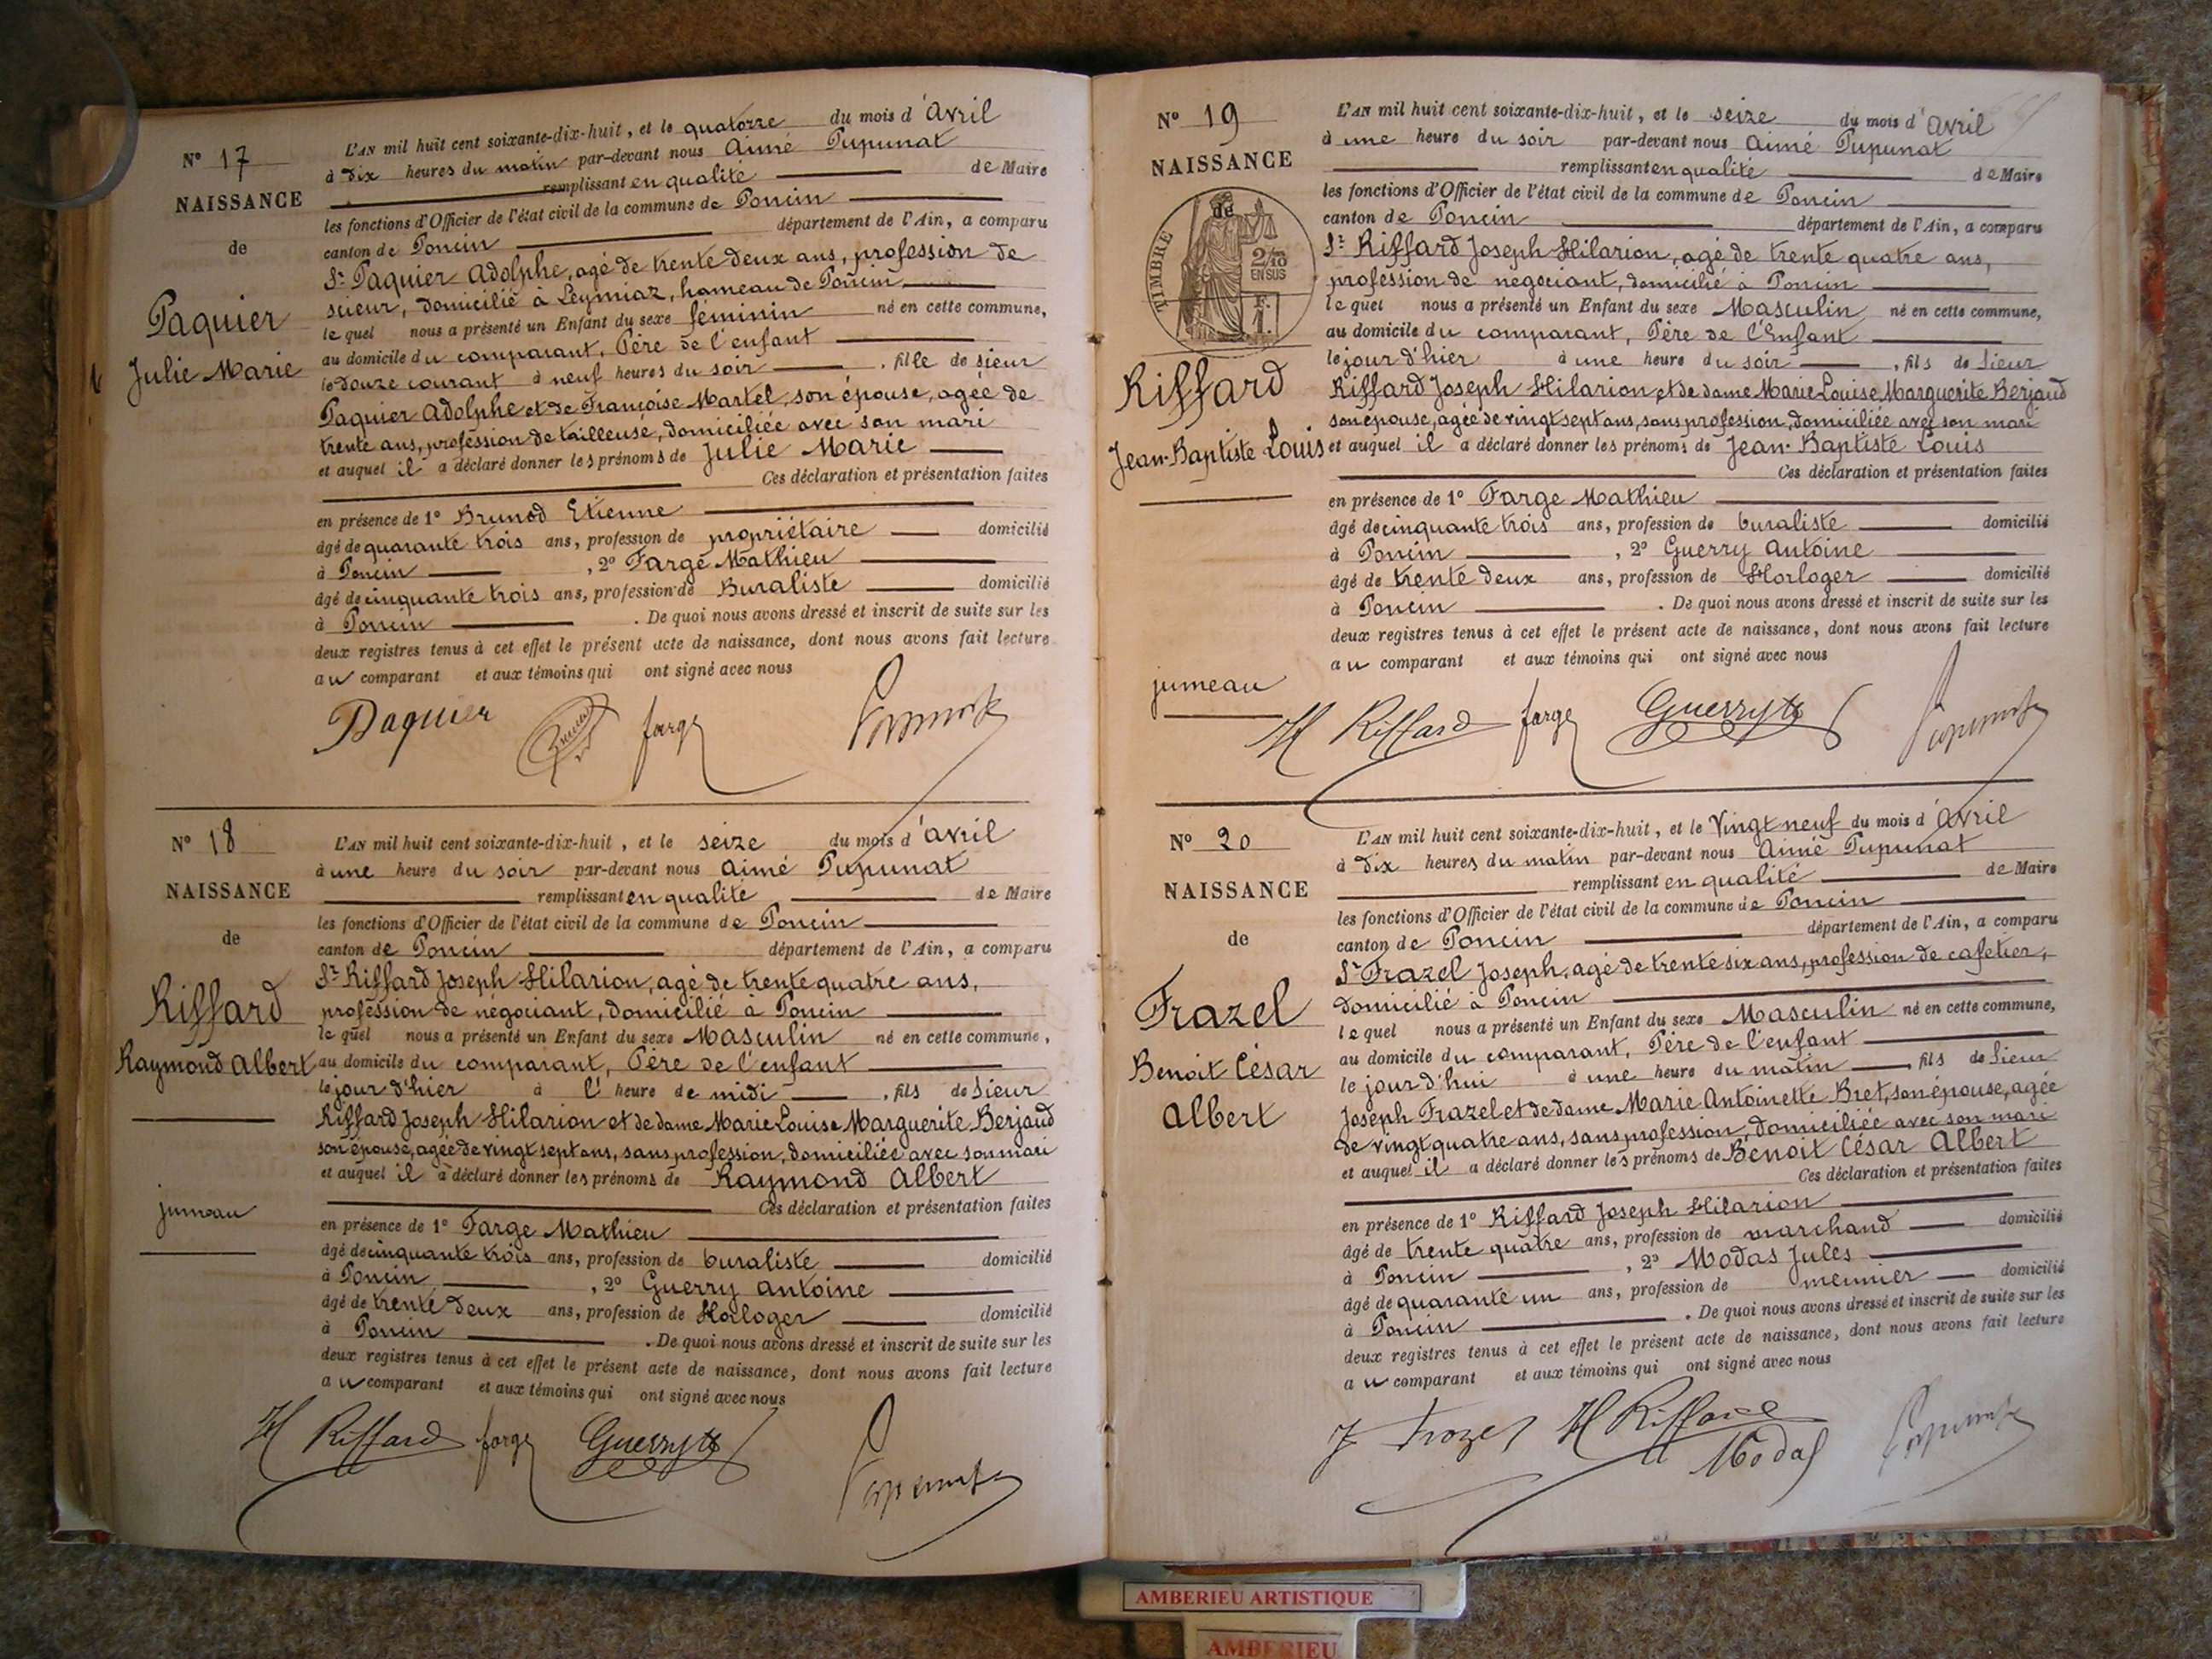 N° 17
NAISSANCE
de
Paquier
Julie Marie
L'AN mil huit cent soixante-dix-huit, et le quatorze du mois d'Avril
à dix heures du matin par-devant nous Aimé Pupunat
remplissant en qualité de Maire
les fonctions d'Officier de l'état civil de la commune de Poncin
canton de Poncin département de l'Ain, a comparu
Sr Paquier Adolphe, agé de trente deux ans, profession de
scieur, domicilié à Leymiaz, hameau de Poncin
le quel nous a présenté un Enfant du sexe féminin né en cette commune,
au domicile du comparant, Père de l'enfant
le douze courant à neuf heures du soir, fille de sieur
Paquier Adolphe et de Françoise Martel, son épouse, agée de
trente ans, profession de tailleuse, domiciliée avec son mari
et auquel il a déclaré donner les prénoms de Julie Marie
Ces déclaration et présentation faites
en présence de 1° Brunod Etienne
âgé de quarante trois ans, profession de propriétaire domicilié
à Poncin, 2° Farge Mathieu
âgé de cinquante trois ans, profession de Buraliste domicilié
à Poncin. De quoi nous avons dressé et inscrit de suite sur les
deux registres tenus à cet effet le présent acte de naissance, dont nous avons fait lecture
au comparant et aux témoins qui ont signé avec nous
Paquier Brunod farge Pupunat
N° 18
NAISSANCE
de
Riffard
Raymond Albert
jumeau
L'AN mil huit cent soixante-dix-huit, et le seize du mois d'avril
à une heure du soir par-devant nous Aimé Pupunat
remplissant en qualité de Maire
les fonctions d'Officier de l'état civil de la commune de Poncin
canton de Poncin département de l'Ain, a comparu
Sr Riffard Joseph Hilarion, agé de trente quatre ans,
profession de négociant, domicilié à Poncin
le quel nous a présenté un Enfant du sexe Masculin né en cette commune,
au domicile du comparant, Père de l'enfant
le jour d'hier à l' heure de midi, fils de Sieur
Riffard Joseph Hilarion et de dame Marie Louise Marguerite Berjaud
son épouse, agée de vingt sept ans, sans profession, domiciliée avec son mari
et auquel il a déclaré donner les prénoms de Raymond Albert
Ces déclaration et présentation faites
en présence de 1° Farge Mathieu
âgé de cinquante trois ans, profession de buraliste domicilié
à Poncin, 2° Guerry Antoine
âgé de trente deux ans, profession de Horloger domicilié
à Poncin. De quoi nous avons dressé et inscrit de suite sur les
deux registres tenus à cet effet le présent acte de naissance, dont nous avons fait lecture
au comparant et aux témoins qui ont signé avec nous
H Riffard farge Guerry Pupunat
N° 19
NAISSANCE
de
TIMBRE
2/10
EN SUS
Riffard
Jean-Baptiste Louis
jumeau
L'AN mil huit cent soixante-dix-huit, et le seize du mois d'avril
à une heure du soir par-devant nous Aimé Pupunat
remplissant en qualité de Maire
les fonctions d'Officier de l'état civil de la commune de Poncin
canton de Poncin département de l'Ain, a comparu
Sr Riffard Joseph Hilarion, agé de trente quatre ans,
profession de négociant, domicilié à Poncin
le quel nous a présenté un Enfant du sexe Masculin né en cette commune,
au domicile du comparant, Père de l'Enfant
le jour d'hier à une heure du soir, fils de Sieur
Riffard Joseph Hilarion et de dame Marie Louise Marguerite Berjaud
son épouse, agée de vingt sept ans, sans profession, domiciliée avec son mari
et auquel il a déclaré donner les prénoms de Jean-Baptiste Louis
Ces déclaration et présentation faites
en présence de 1° Farge Mathieu
âgé de cinquante trois ans, profession de buraliste domicilié
à Poncin, 2° Guerry Antoine
âgé de trente deux ans, profession de Horloger domicilié
à Poncin. De quoi nous avons dressé et inscrit de suite sur les
deux registres tenus à cet effet le présent acte de naissance, dont nous avons fait lecture
au comparant et aux témoins qui ont signé avec nous
H Riffard farge Guerry Pupunat
N° 20
NAISSANCE
de
Frazel
Benoit César
Albert
L'AN mil huit cent soixante-dix-huit, et le Vingt neuf du mois d'avril
à dix heures du matin par-devant nous Aimé Pupunat
remplissant en qualité de Maire
les fonctions d'Officier de l'état civil de la commune de Poncin
canton de Poncin département de l'Ain, a comparu
Sr Frazel Joseph, agé de trente six ans, profession de cafetier,
domicilié à Poncin
le quel nous a présenté un Enfant du sexe Masculin né en cette commune,
au domicile du comparant, Père de l'enfant
le jour d'hui à une heure du matin, fils de Sieur
Joseph Frazel et de dame Marie Antoinette Bret, son épouse, agée
de vingt quatre ans, sans profession, domiciliée avec son mari
et auquel il a déclaré donner les prénoms de Benoit César Albert
Ces déclaration et présentation faites
en présence de 1° Riffard Joseph Hilarion
âgé de trente quatre ans, profession de marchand domicilié
à Poncin, 2° Modas Jules
âgé de quarante un ans, profession de meunier domicilié
à Poncin. De quoi nous avons dressé et inscrit de suite sur les
deux registres tenus à cet effet le présent acte de naissance, dont nous avons fait lecture
au comparant et aux témoins qui ont signé avec nous
J Frazel H Riffard Modas Pupunat
AMBERIEU ARTISTIQUE
AMBERIEU